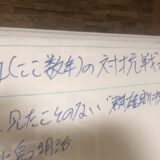 (ここ数年)の対抗戦
見たことのない"群雄割
明治